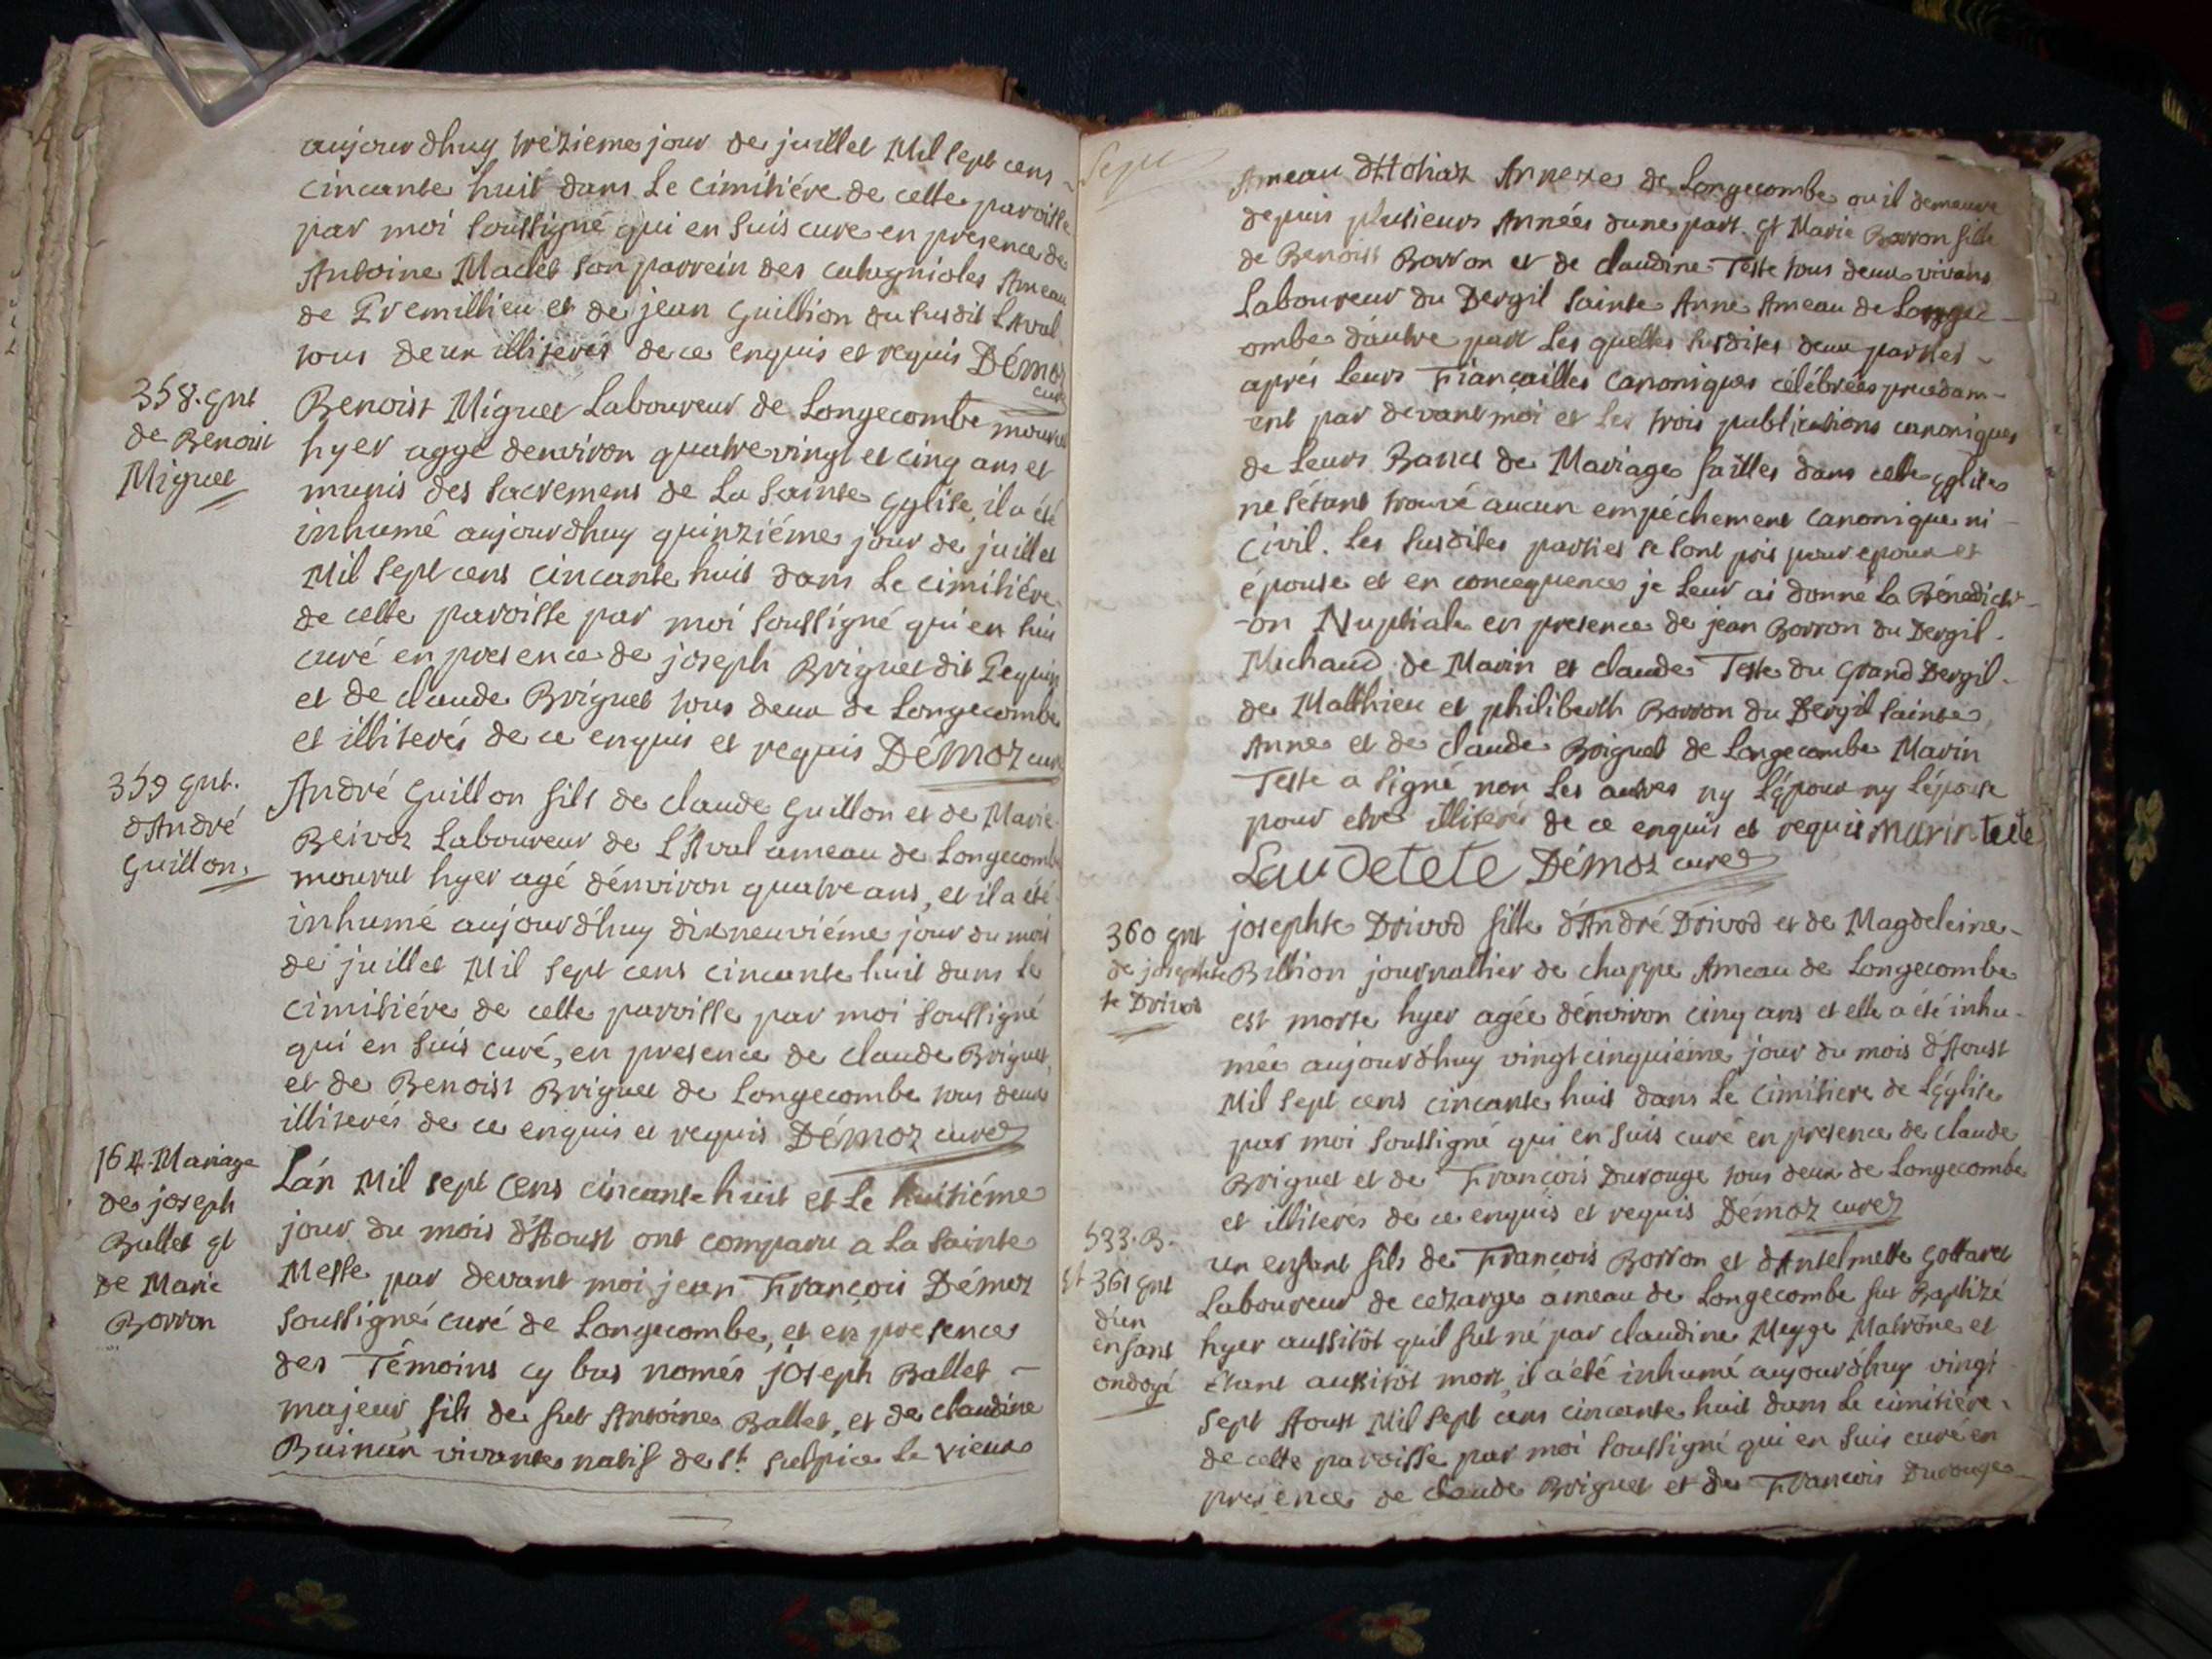 aujourdhuy trézieme jour de juillet Mil sept cens
cincante huit dans Le cimitiére de cette paroisse
par moi soussigné qui en suis curé en presence de
Antoine Maclet son parrein des catagnioles Ameau
de Premillieu et de jean Guillion du susdit L'Aval
tous deux illiterés de ce enquis et requis Démoz
curé
358. Ent
de Benoit
Miguet
Benoist Miguet Laboureur de Longecombe mourut
hyer aggé denviron quatre vingt et cinq ans et
munis des sacremens de La Sainte Eglise, il a été
inhumé aujourdhuy quinziéme jour de juillet
Mil sept cens cincante huit dans Le cimitiére
de cette paroisse par moi soussigné qui en suis
curé en presence de joseph Briguet dit Pequin
et de claude Briguet tous deux de Longecombe
et illiterés de ce enquis et requis Démoz curé
359 Ent.
d'André
Guillon
André Guillon fils de claude Guillon et de Marie
Beivoz Laboureur de L'Aval ameau de Longecombe
mourut hyer agé d'environ quatre ans, et il a été
inhumé aujourd'huy dixneuviéme jour du mois
de juillet Mil sept cens cincante huit dans Le
cimitiére de cette paroisse par moi soussigné
qui en suis curé, en presence de claude Briguet,
et de Benoist Briguet de Longecombe tous deux
illiterés de ce enquis et requis Démoz curé
164. Mariage
de joseph
Ballet et
de Marie
Borron
L'an Mil sept cens cincante huit et Le huitiéme
jour du mois d'Aoust ont comparu a La sainte
Messe par devant moi jean François Démoz
soussigné curé de Longecombe, et en presence
des Témoins cy bas només joseph Ballet
majeur, fils de fut Antoine Ballet, et de claudine
vivante natif de St. Sulpice Le vieux
Ameau d'Hotiaz Annexe de Longecombe ou il demeure
depuis plusieurs Années dune part. Et Marie Borron fille
de Benoist Borron et de claudine Teste tous deux vivans
Laboureur du Dergil Sainte Anne Ameau de Longec-
ombe d'autre part Les quelles susdites deux parties
aprés Leurs Fiançailles canoniques célébrées precedam-
ent par devant moi et Les trois publications canoniques
de Leurs Bancs de Mariage faittes dans cette Eglise
ne s'étant trouvé aucun empéchement canonique ni
civil. Les susdites parties se sont pris pour epoux et
épouse et en concequence je Leur ai donné La Bénédicti-
-on Nuptiale en presence de jean Borron du Dergil
Michaud. de Marin et claude Teste du Grand Dergil
de Matthieu et philiberth Borron du Dergil Sainte
Anne et de claude Briguet de Longecombe Marin
Teste a signé non Les autres ny L'Epoux ny L'épouse
pour etre illiterés de ce enquis et requis marin teste
Laudetete Démoz curé
360 Ent
de josephte
te Drivod
josephte Drivod fille d'André Drivod et de Magdeleine
Billion journallier de chappe Ameau de Longecombe
est morte hyer agée d'environ cinq ans et elle a été inhu-
mée aujourdhuy vingt cinquiéme jour du mois d'Aoust
Mil sept cens cincante huit dans Le cimitiere de L'Eglise
par moi soussigné qui en suis curé en presence de claude
Briguet et de François Durouge tous deux de Longecombe
et illiterés de ce enquis et requis Démoz curé
533. B.
Et 361 Ent
d'un
enfant
ondoyé
un enfant fils de François Borron et d'Antelmette Gottaret
Laboureur de cezarge ameau de Longecombe fut Baptizé
hyer aussitôt qu'il fut né par claudine Meyge Matrône et
étant aussitôt mort, il a été inhumé aujourd'huy vingt
sept Aoust Mil sept cens cincante huit dans Le cimitiére
de cette paroisse par moi soussigné qui en suis curé en
presence de claude Briguet et de François Durouge